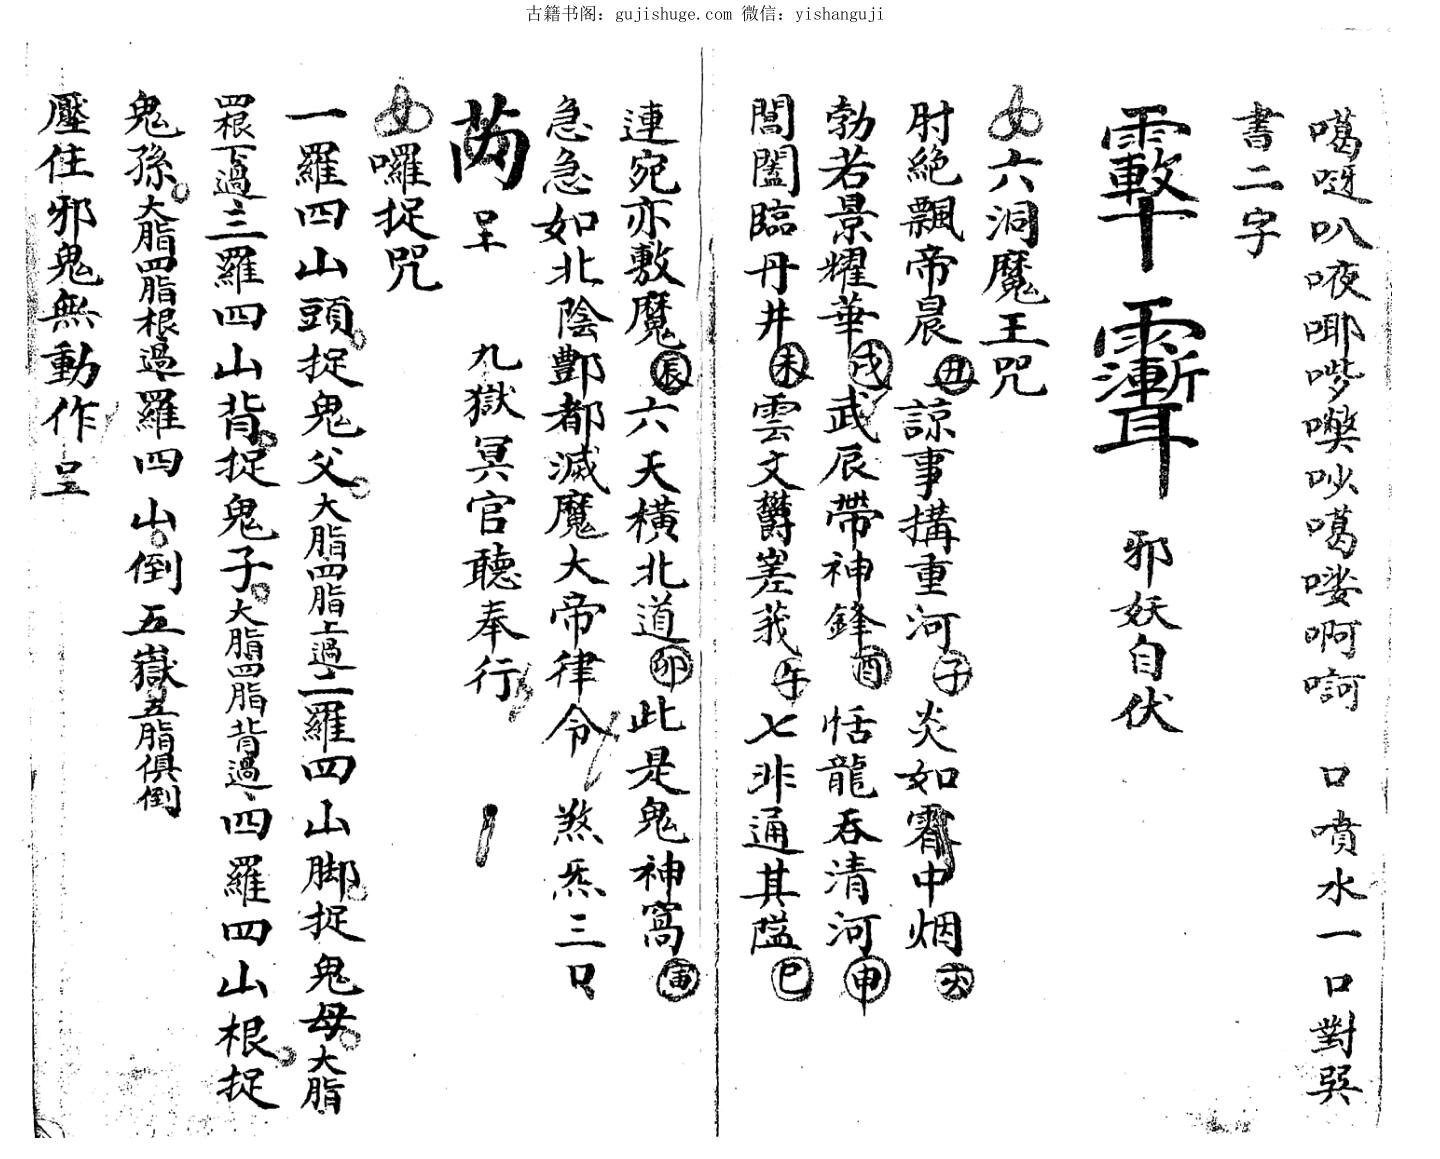 古籍书阁：gujishuge.com 微信：yishanguji
噶呀叭㖡哪嘇㗫吵噶嘍啊嗬 口噴水一口對巽
書二字
邪妖自伏
六洞魔王咒
肘絕飄帝晨丑諒事搆重河子炎如霄中烟亥
勃若景耀華戌武辰帶神鋒酉恬龍吞清河申
閶闔臨丹井未雲文欝嵳莪午七非通其隘巳
連宛亦敷魔辰六天橫北道卯此是鬼神窩寅
急急如北陰酆都滅魔大帝律令 煞炁三口
九獄冥官聽奉行
囉捉咒
一羅四山頭捉鬼父大脂四脂上過二羅四山脚捉鬼母大脂
四根下過三羅四山背捉鬼子大脂四脂背過四羅四山根捉
鬼孫大脂四脂根過羅四山倒五嶽五脂俱倒
壓住邪鬼無動作